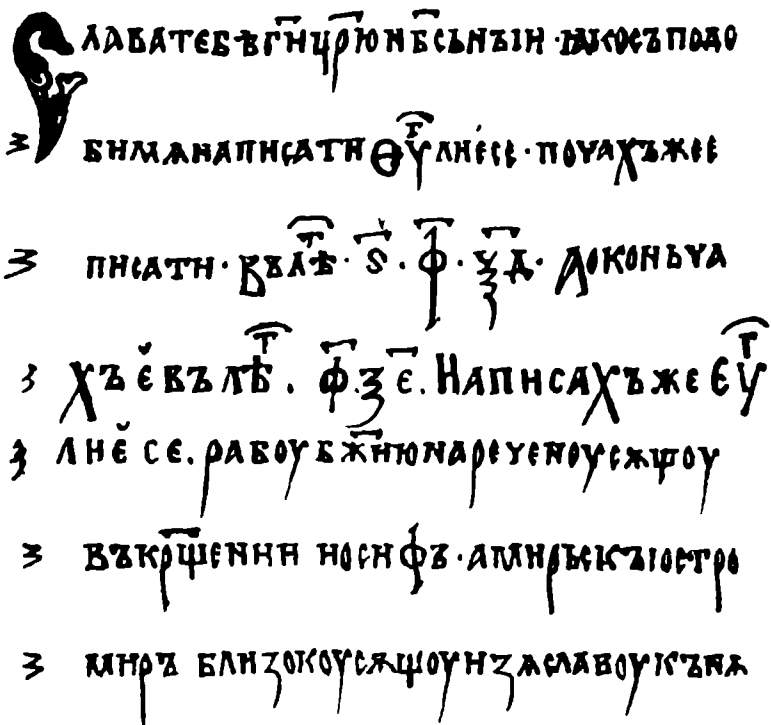 СЛАВАТЕБѢГ҃ИЦР҃ЮНБ҃СЬНЪІИ·ꙖКОСЪПОДО
БИМѦНАПИСАТИЄѴⷢ҇ЛИЕСЕ·ПОЧАХЪЖЕЕ
ПИСАТИ·ВЪЛѢⷮ҇·Ѕ҃·Ф҃·Ѯ҃Д·АОКОНЬЧА
ХЪЕВЪЛѢⷮ҇.Ф҃.ЗЄ҃.НАПИСАХЪЖЕЄѴⷢ҇
ЛИЕСЕ.РАБОУБЖ҃ИЮНАРЕЧЕНОУСѪЩОУ
ВЪКРЩ҃ЕНИИИОСИФЪ·АМИРЬСКЪІОСТРО
МИРЪБЛИЗОКОУСѪЩОУИЗѦСЛАВОУКЪНѦ